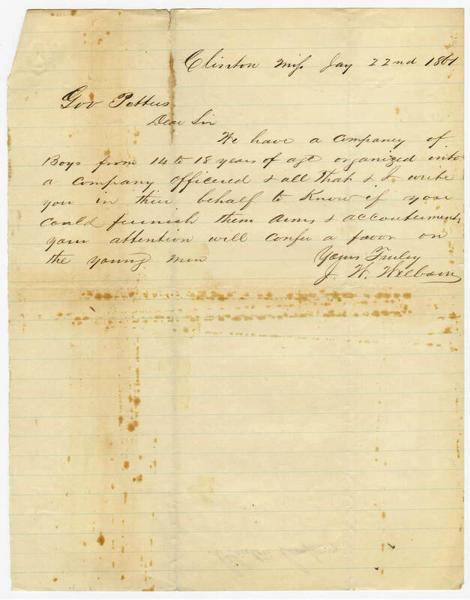 Clinton Miss Jay 22nd 1861
Gov Pettus
Dear Sir
We have a company of
Boys from 14 to 18 years of age organized into
a company officered & all that & I write
you in their behalf to know if you
could furnish them arms & accouterments
your attention will confer a favor on
the young men
Yours Truly
J. W. Welborn